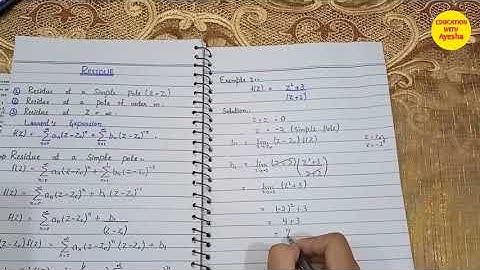 EDUCATION
WITH
Ayesha
RESIDUE
① Residue at a Simple pole (z=z₀)
② Residue at a pole of order m.
③ Residue at z = ∞.
Laurent's Expansion
f(z) = Σ aₙ(z-z₀)ⁿ + Σ bₙ(z-z₀)⁻ⁿ
Residue at a Simple pole:-
f(z) = Σ aₙ(z-z₀)ⁿ + Σ bₙ(z-z₀)⁻ⁿ
f(z) = Σ aₙ(z-z₀)ⁿ + b₁(z-z₀)⁻¹
f(z) = Σ aₙ(z-z₀)ⁿ + b₁/(z-z₀)
(z-z₀)f(z) = Σ aₙ(z-z₀)ⁿ(z-z₀) + b₁
Example
f(z) = z²+3/(z+2)
Solution:
z+2 = 0
z = -2 (Simple pole)
b₁ = lim (z-z₀) f(z)
b₁ = lim (z+2) (z²+3)/(z+2)
= lim (z²+3)
= (-2)²+3
= 4+3
= 7